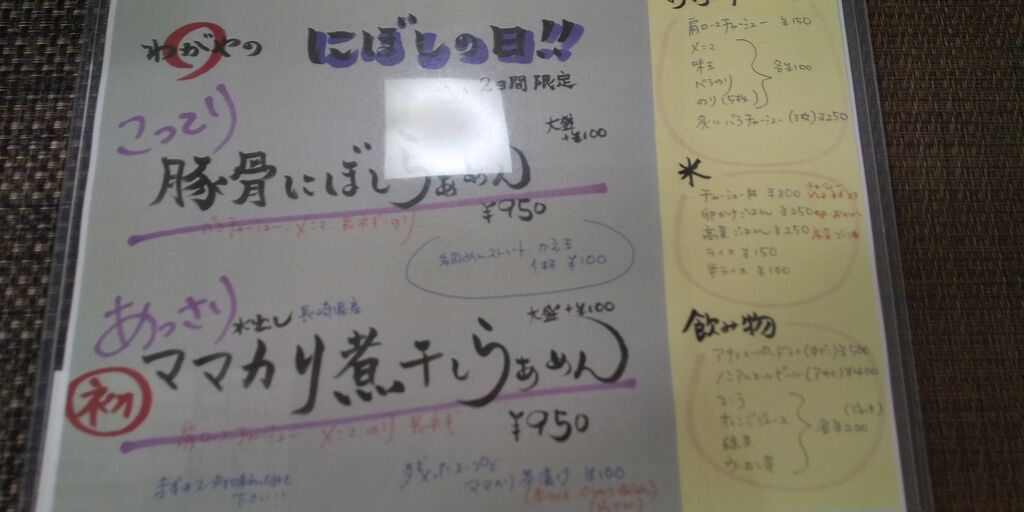 わがやの にぼしの日!!
2日間限定
こってり
大盛+¥100
豚骨にぼしらぁめん
¥950
バラチャーシュー、メンマ 長ネギ のり
細めんストレート かえ玉
1杯 ¥100
あっさり 水出し 長崎県産
大盛+¥100
初 ママカリ煮干しらぁめん
¥950
肩ロースチャーシュー メンマ のり 長ネギ
残ったスープで
ママカリ茶漬け ¥100
肩ロースチャーシュー ¥150
メンマ
味玉
バラのり
のり(5枚)
各¥100
炙りバラチャーシュー(3枚)¥250
米
チャーシュー丼 ¥300
卵かけごはん ¥250
高菜ごはん ¥250
ライス ¥150
半ライス ¥100
飲み物
アサヒスーパードライ(中びん)¥500
ノンアルコールビール(アサヒ)¥400
コーラ
オレンジジュース
緑茶
ウーロン茶
各¥200